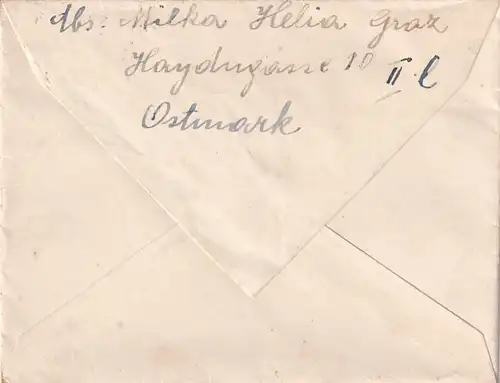 Abs: Milka Helia Graz
Haydngasse 10 II. l
Ostmark